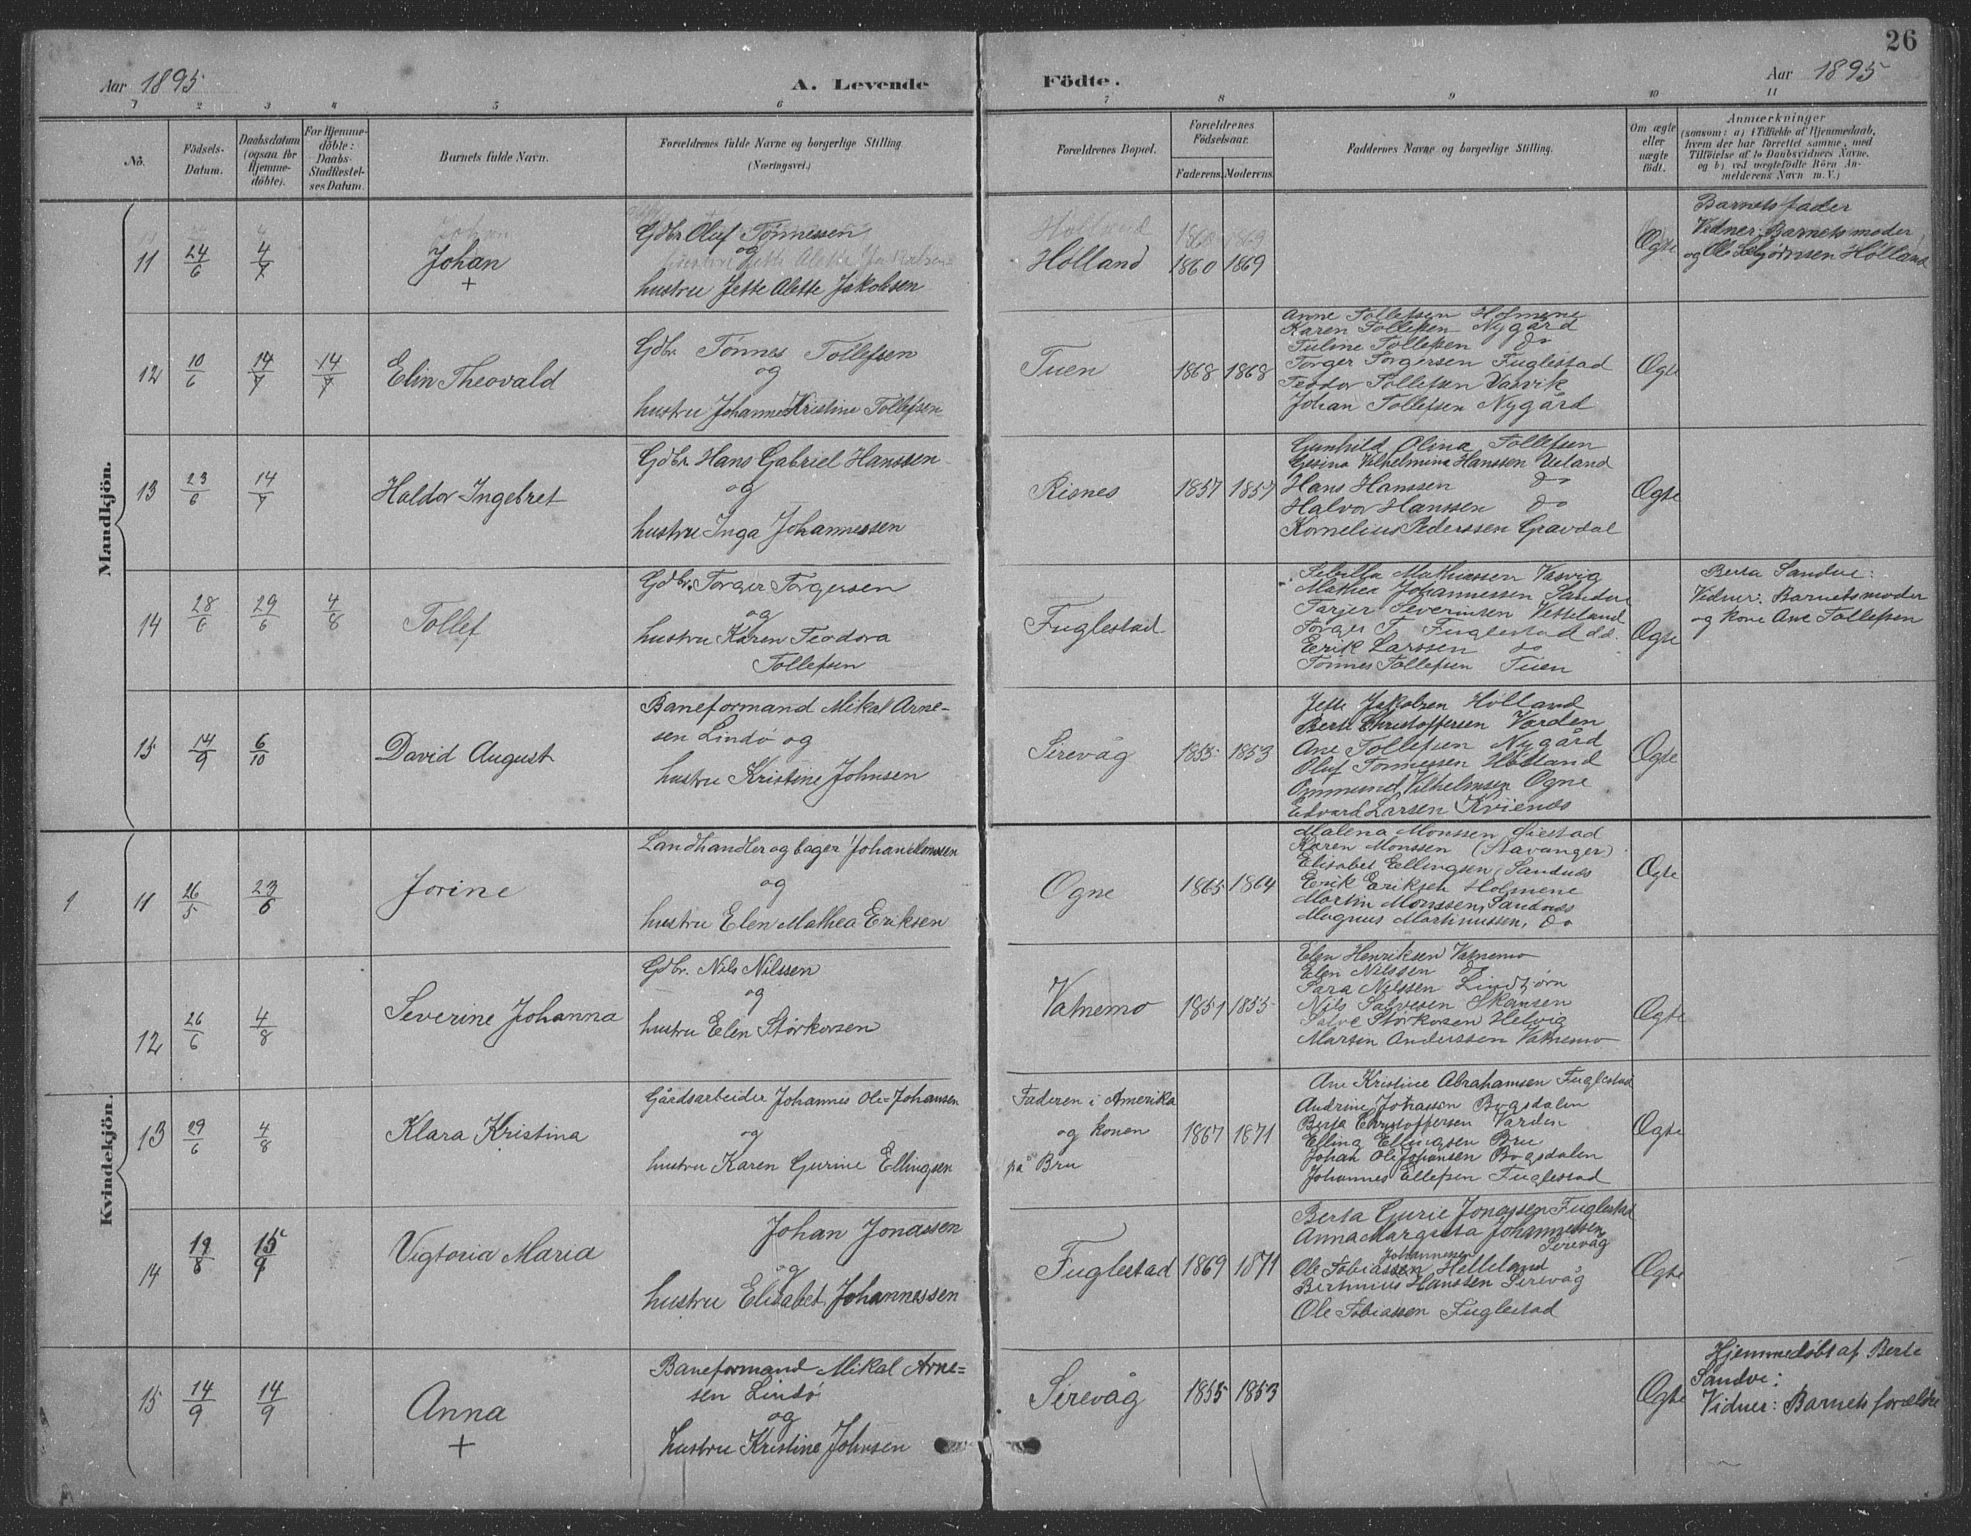 26
Aar 1895
A. Levende Födte.
Aar 1895
1 2 3 4 5 6 7 8 9 10 11
No.
Födsels-Datum.
Daabsdatum (ogsaa for Hjemme-döbte).
For Hjemme-döbte: Daabs-Stadfæstel-ses Datum.
Barnets fulde Navn.
Forældrenes fulde Navne og borgerlige Stilling.
(Næringsvei.)
Forældrenes Bopæl.
Forældrenes Födselsaar.
Faderens. Moderens.
Faddernes Navne og borgerlige Stilling.
Om ægte eller uægte födt.
Anmærkninger
(saasom: a) i Tilfælde af Hjemmedaab,
hvem der har forrettet samme, med
Tilföielse af to Daabsvidners Navne,
og b) ved uægtefödte Börn An-
melderens Navn m. V.)
Mandkjön.
11 24/6 4/7 Johan +
Gdbr Oluf Tönnessen
og
hustru Jette Alette Jakobsen
Holland 1860 1869
Ægte
Barnets fader
Vidner: Barnets moder
og Ole Hölland
12 10/6 14/7 14/7 Elin Theovald
Gdbr. Tönnes Tollefsen
og
hustru Johanne Kristine Tollefsen
Tuen 1868 1868
Anne Tollefsen Holmene
Karen Tollefsen Nygård
Tuline Tollefsen do
Torger Torgersen Fuglestad
Teodor Tollefsen Vasvik
Johan Tollefsen Nygård
Ægte
13 23/6 14/7 Haldor Ingebret
Gdbr Hans Gabriel Hanssen
og
hustru Inga Johannessen
Risnes 1857 1857
Gunhild Olina Tollefsen
Gesina Vilhelmina Hanssen Ueland
Hans Hanssen do
Halvor Hanssen do
Kornelius Pederssen Gravdal
Ægte
14 28/6 29/6 4/8 Tollef
Gdbr. Torger Torgersen
og
hustru Karen Teodora
Tollefsen
Fuglestad
Sibilla Mathiassen Vasvig
Mathea Johannessen Sandve
Tarjer Severinsen Vetteland
Torger T. Fuglestad d.e.
Eerik Larssen do
Tönnes Tollefsen Tuen
Ægte
Berta Sandve:
Vidner: Barnets moder
og kone Ane Tollefsen
15 14/9 6/10 David August
Baneformand Mikal Arne-
sen Lindö og
hustru Kristine Johnsen
Sirevåg 1855 1853
Jette Jakobsen Hölland
Berte Christoffersen Varden
Ane Tollefsen Nygård
Oluf Tönnessen Hölland
Ommund Vilhelmsen Ogne
Edvard Larsen Kvienes
Ægte
Kvindekjön.
1 11 26/5 23/6 Jorine
Landhandler og bager Johan Monssen
og
hustru Elen Mathea Eriksen
Ogne 1865 1864
Malena Monssen Øiestad
Karen Monssen (Stavanger)
Elisabet Ellingsen, Sandnæs
Eerik Eriksen Holmene
Martin Monssen, Sandnæs
Magnus Martinussen, do
Ægte
12 26/6 4/8 Severine Johanna
Gdbr. Nils Nilssen
og
hustru Elen Störkorsen
Vatnemo 1851 1855
Elen Henriksen Vatnemo
Elen Nilssen do
Sara Nilssen Lindtjörn
Nils Salvesen Skansen
Salve Störkorsen Helvig
Martin Anderssen Vatnemo
Ægte
13 29/6 4/8 Klara Kristina
Gårdsarbeider Johannes Ole-Johansen
og
hustru Karen Gurine Ellingsen
Faderen i Amerika
og konen
på Bru
1867 1871
Ane Kristine Abrahamsen Fuglestad
Andrine Johassen Bogsdalen
Berta Christoffersen Varden
Elling Ellingsen Bru
Johan Olejohansen Bogsdalen
Johannes Ellefsen Fuglestad
Ægte
14 19/8 15/9 Vigtoria Maria
Johan Jonassen
og
hustru Elisabet Johannessen
Fuglestad 1869 1871
Berta Gurie Jonassen Fuglestad
Anna Margreta Johannessen
Sirevåg
Johannesen
Ole Tobiassen Helleland
Bertinius Hanssen Sirevåg
Ole Tobiassen Fuglestad
Ægte
15 14/9 14/9 Anna +
Baneformand Mikal Arne-
sen Lindö
og
hustru Kristine Johnsen
Sirevåg 1855 1853
Ægte
Hjemmedöbt af Berte
Sandve:
Vidner: Barnets forældre